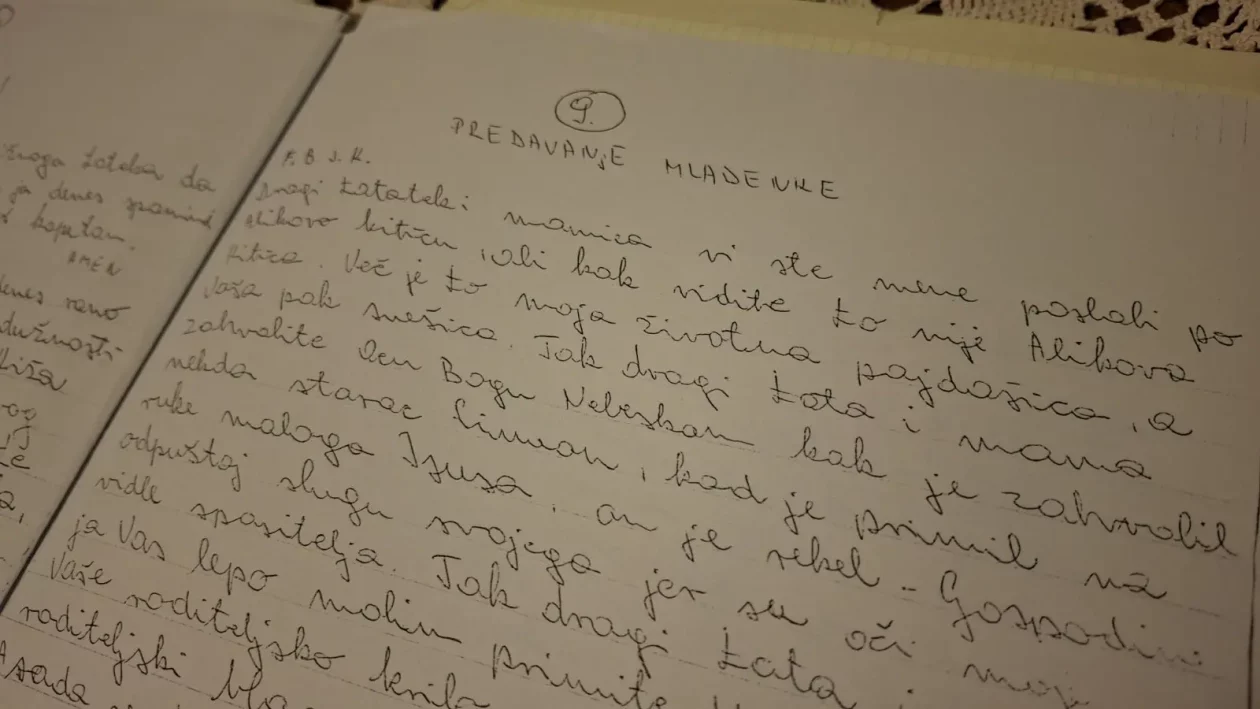 šnoga žitka da
ja denes spomini
kapetan.
AMEN
denes rano
dužnosti
Kiša
9.
PREDAVANJE MLADENKE
F. B. J. K.
Dragi tatek i mamica vi ste mene poslali po
alikovo kiticu, ali kak vidite to nije Alikova
kitica. Več je to moja životna pajdašica, a
vaša pak snešica. Tak dragi tata i mama
zahvalite Bogu Nebeskom kak je zahvalil
nekda starac Šimun, kad je primil na
ruke maloga Isusa, on je rekel - Gospodine
odpuštaj slugu svojega jer su oči moje
vidle spasitelja. Tak dragi tata i
ja Vas lepo molim primite
Vaše roditeljsko krilo
roditeljski
sada